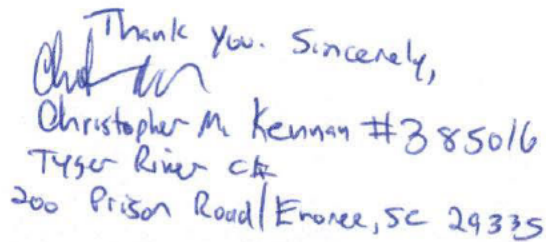 Thank you. Sincerely,
Christopher M. Kennan #385016
Tyger River CI
200 Prison Road/Enoree, SC 29335